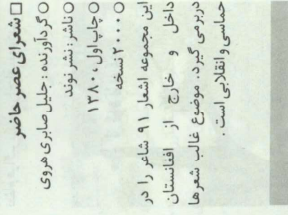 □ شعرای عصر حاضر
○ گردآورنده: جلیل صابری هروی
○ ناشر: نشر نوند
○ چاپ اول، ۱۳۸۰
○ ۲۰۰۰ نسخه
این مجموعه اشعار ۹۱ شاعر را در
داخل و خارج از افغانستان
دربرمی گیرد. موضوع غالب شعرها
حماسی و انقلابی است.